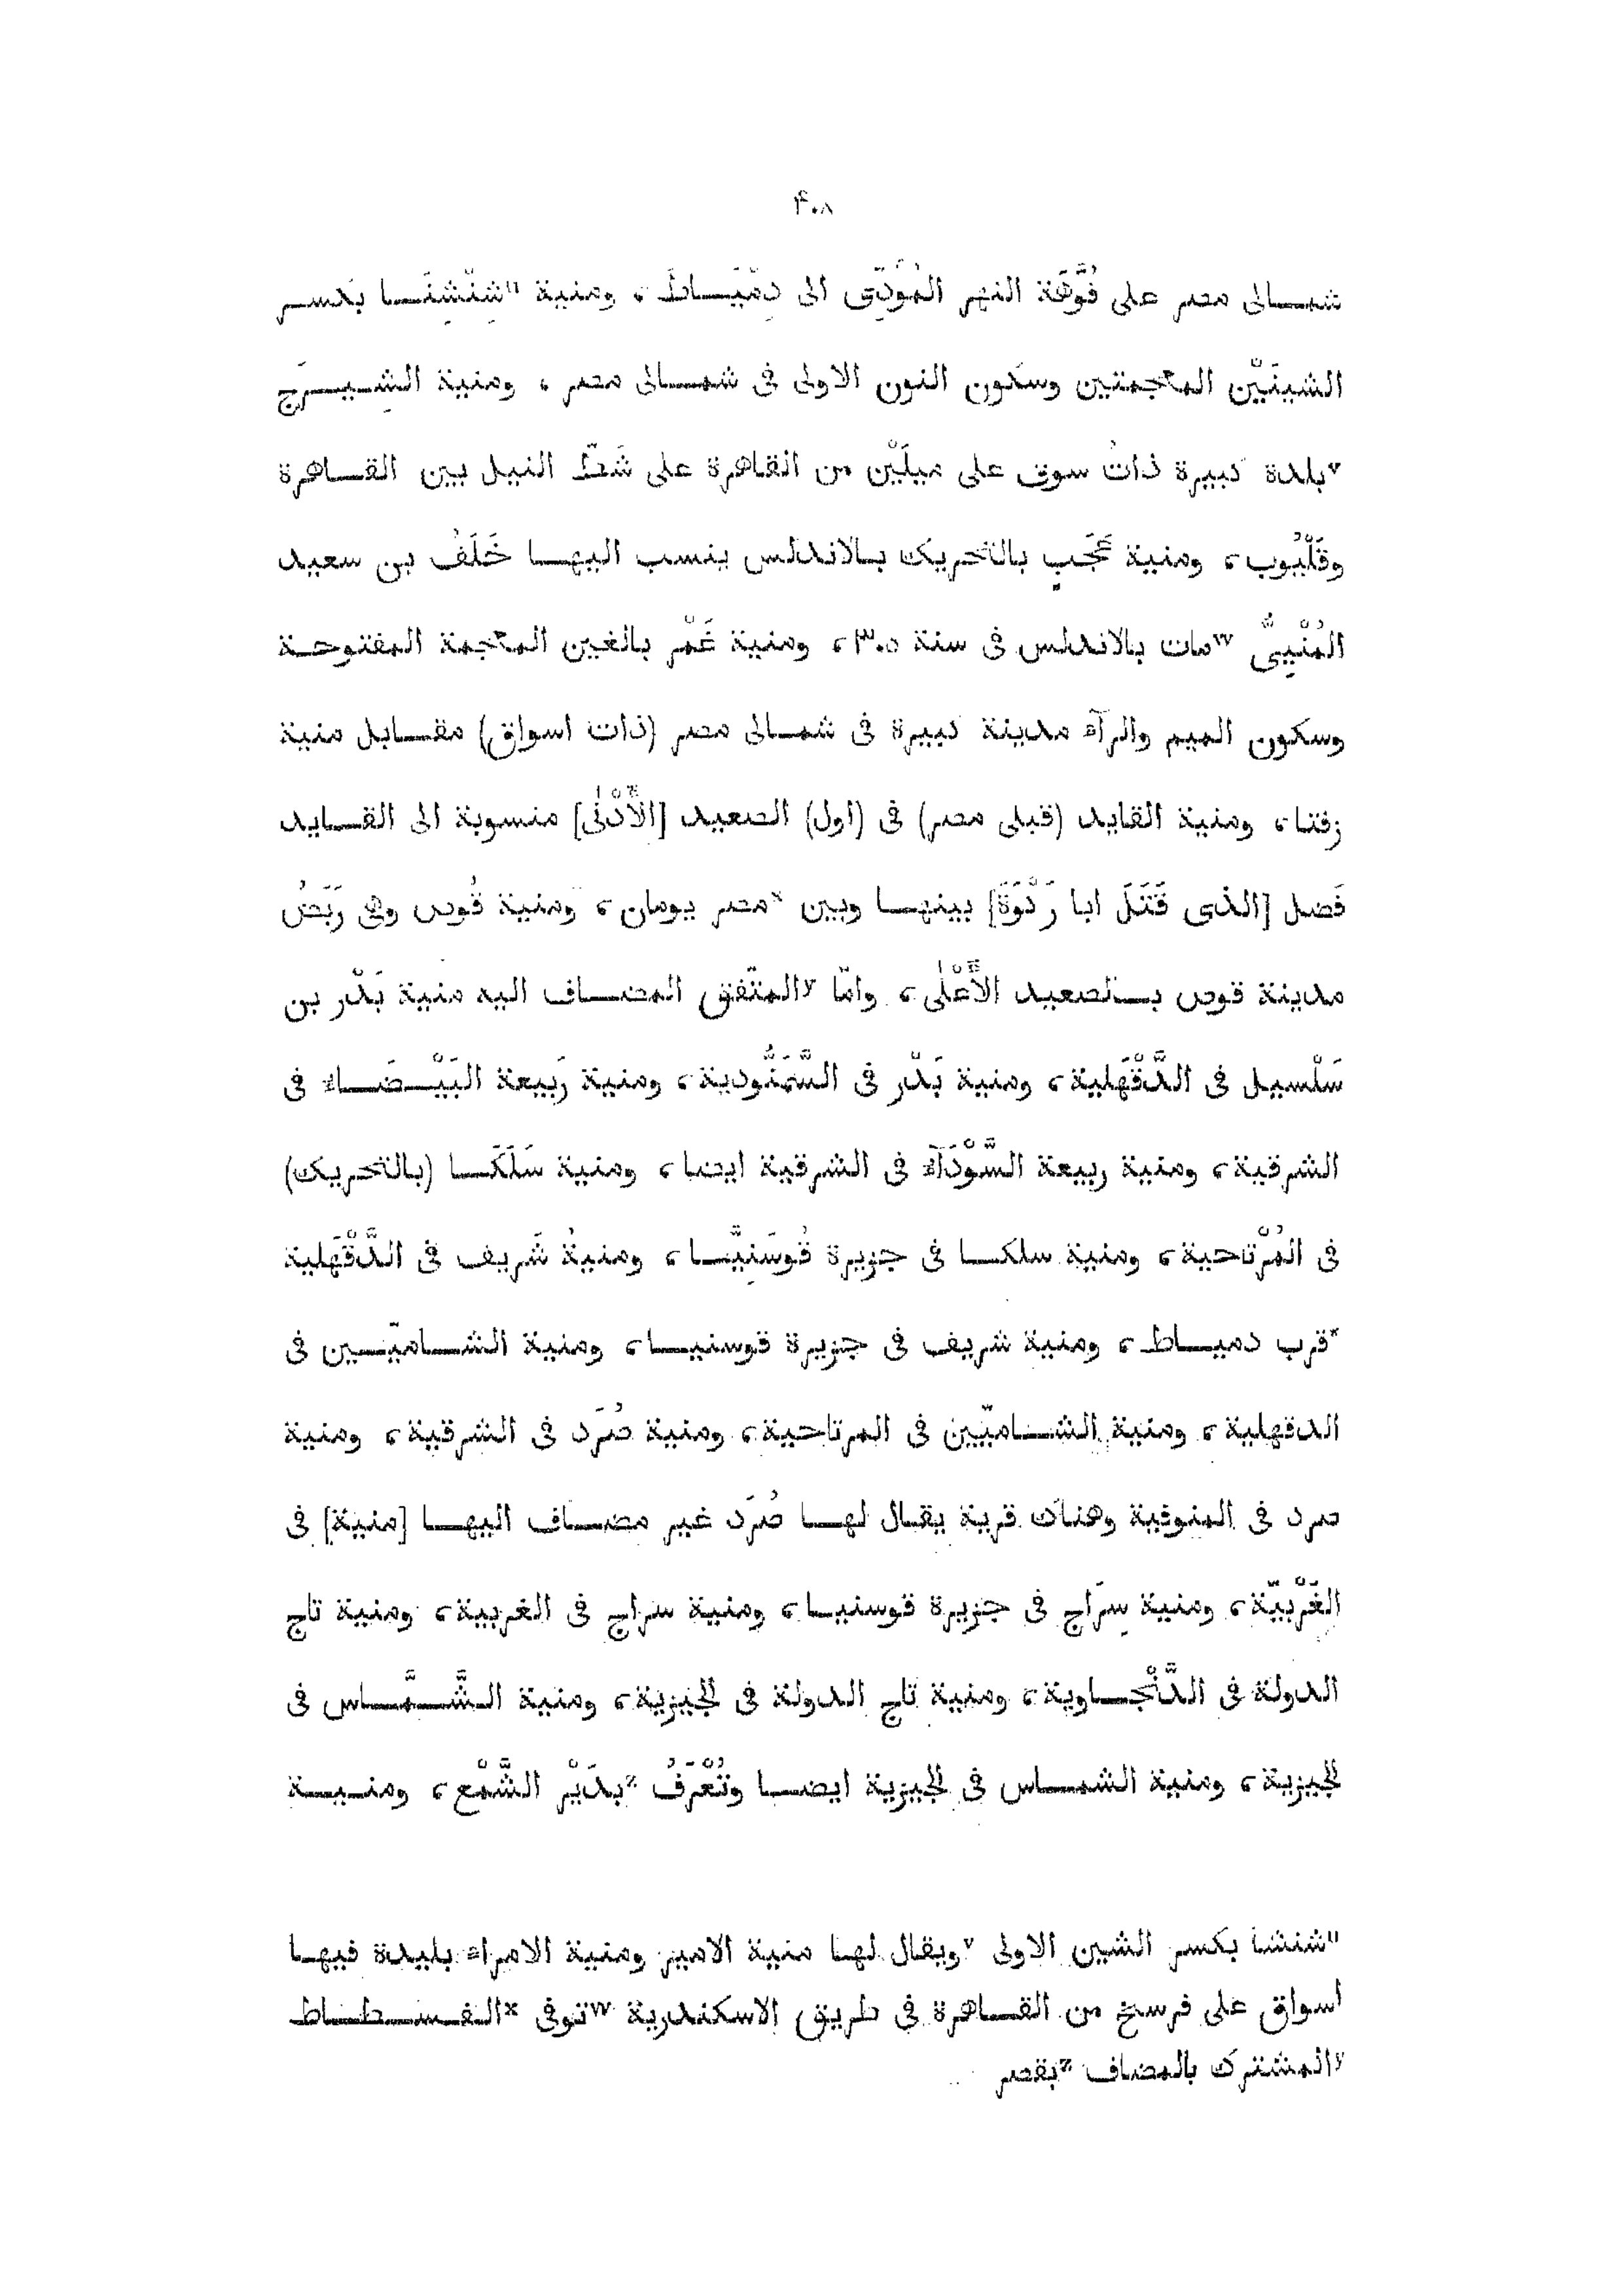 ۴۰۸
شمالى مصر على فُوَّهَة النهر المُوَدّى الى دِمْيَاطَ، ومنية ᵘشِنْشِنَا بكسر
الشينَيْن المعجمتين وسكون النون الاولى فى شمالى مصر، ومنية الشِيرَج
ᵛبلدة كبيرة ذاتُ سوق على ميلَيْن من القاهرة على شَطّ النيل بين القاهرة
وقَلْيُوب، ومنية عَجَبٍ بالتحريك بالاندلس ينسب اليها خَلَفُ بن سعيد
المُنْيِىُّ ʷمات بالاندلس فى سنة ۳۰٥، ومنية غَمْر بالغين المعجمة المفتوحة
وسكون الميم والرآء مدينة كبيرة فى شمالى مصر (ذات اسواق) مقابل منية
زفتا، ومنية القايد (قبلى مصر) فى (اول) الصعيد [الأَدْنٰى] منسوبة الى القايد
فَضل [الذى قَتَلَ ابا رَكْوَةَ] بينها وبين ˣمصر يومان، ومنية قُوص وهى رَبَضُ
مدينة قوص بالصعيد الأَعْلٰى، وامّا ʸالمتّفق المضاف اليه منية بَدْر بن
سَلْسيل فى الدَّقْهَلية، ومنية بَدْر فى السَّمَنُّودية، ومنية رَبيعة البَيْضَاء فى
الشرقية، ومنية ربيعة السَّوْدَآء فى الشرقية ايضا، ومنية سَلَكَا (بالتحريك)
فى المُرْتاحية، ومنية سلكا فى جزيرة قُوسَنِيَّا، ومنيةُ شَريف فى الدَّقْهَلية
*قرب دمياط، ومنية شريف فى جزيرة قوسنيا، ومنية الشاميّين فى
الدقهلية، ومنية الشاميّين فى المرتاحية، ومنية صُرَد فى الشرقية، ومنية
صرد فى المنوفية وهناك قرية يقال لها صُرَد غير مضاف اليها [منية] فى
الغَرْبيّة، ومنية سِرَاج فى جزيرة قوسنيا، ومنية سراج فى الغربية، ومنية تاج
الدولة فى الدَّنْجاوية، ومنية تاج الدولة فى الجيزية، ومنية الشَّمَّاس فى
الجيزية، ومنية الشماس فى الجيزية ايضا وتُعْرَفُ ᶻبدَيْر الشَّمْع، ومنية
ᵘشنشا بكسر الشين الاولى ᵛويقال لها منية الامير ومنية الامراء بليدة فيها
اسواق على فرسخ من القاهرة فى طريق الاسكندرية ʷتوفى ˣالفسطاط
ʸالمشترك بالمضاف ᶻبقصر